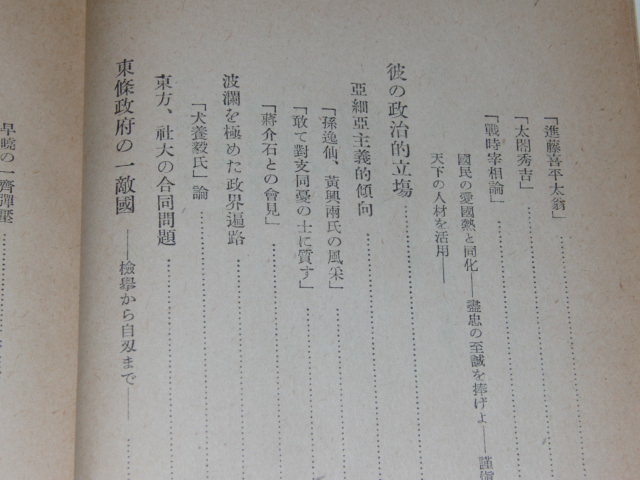 「進藤喜平太翁」
「太閤秀吉」
「戰時宰相論」
國民の愛國熱と同化——盡忠の至誠を捧げよ——謹愼
天下の人材を活用——
彼の政治的立場
亞細亞主義的傾向
「孫逸仙、黃興兩氏の風采」
「敢て對支同憂の士に質す」
「蔣介石との會見」
波瀾を極めた政界遍路
「犬養毅氏」論
東方、社大の合同問題
東條政府の一敵國——檢擧から自刄まで——
早曉の一齊彈壓